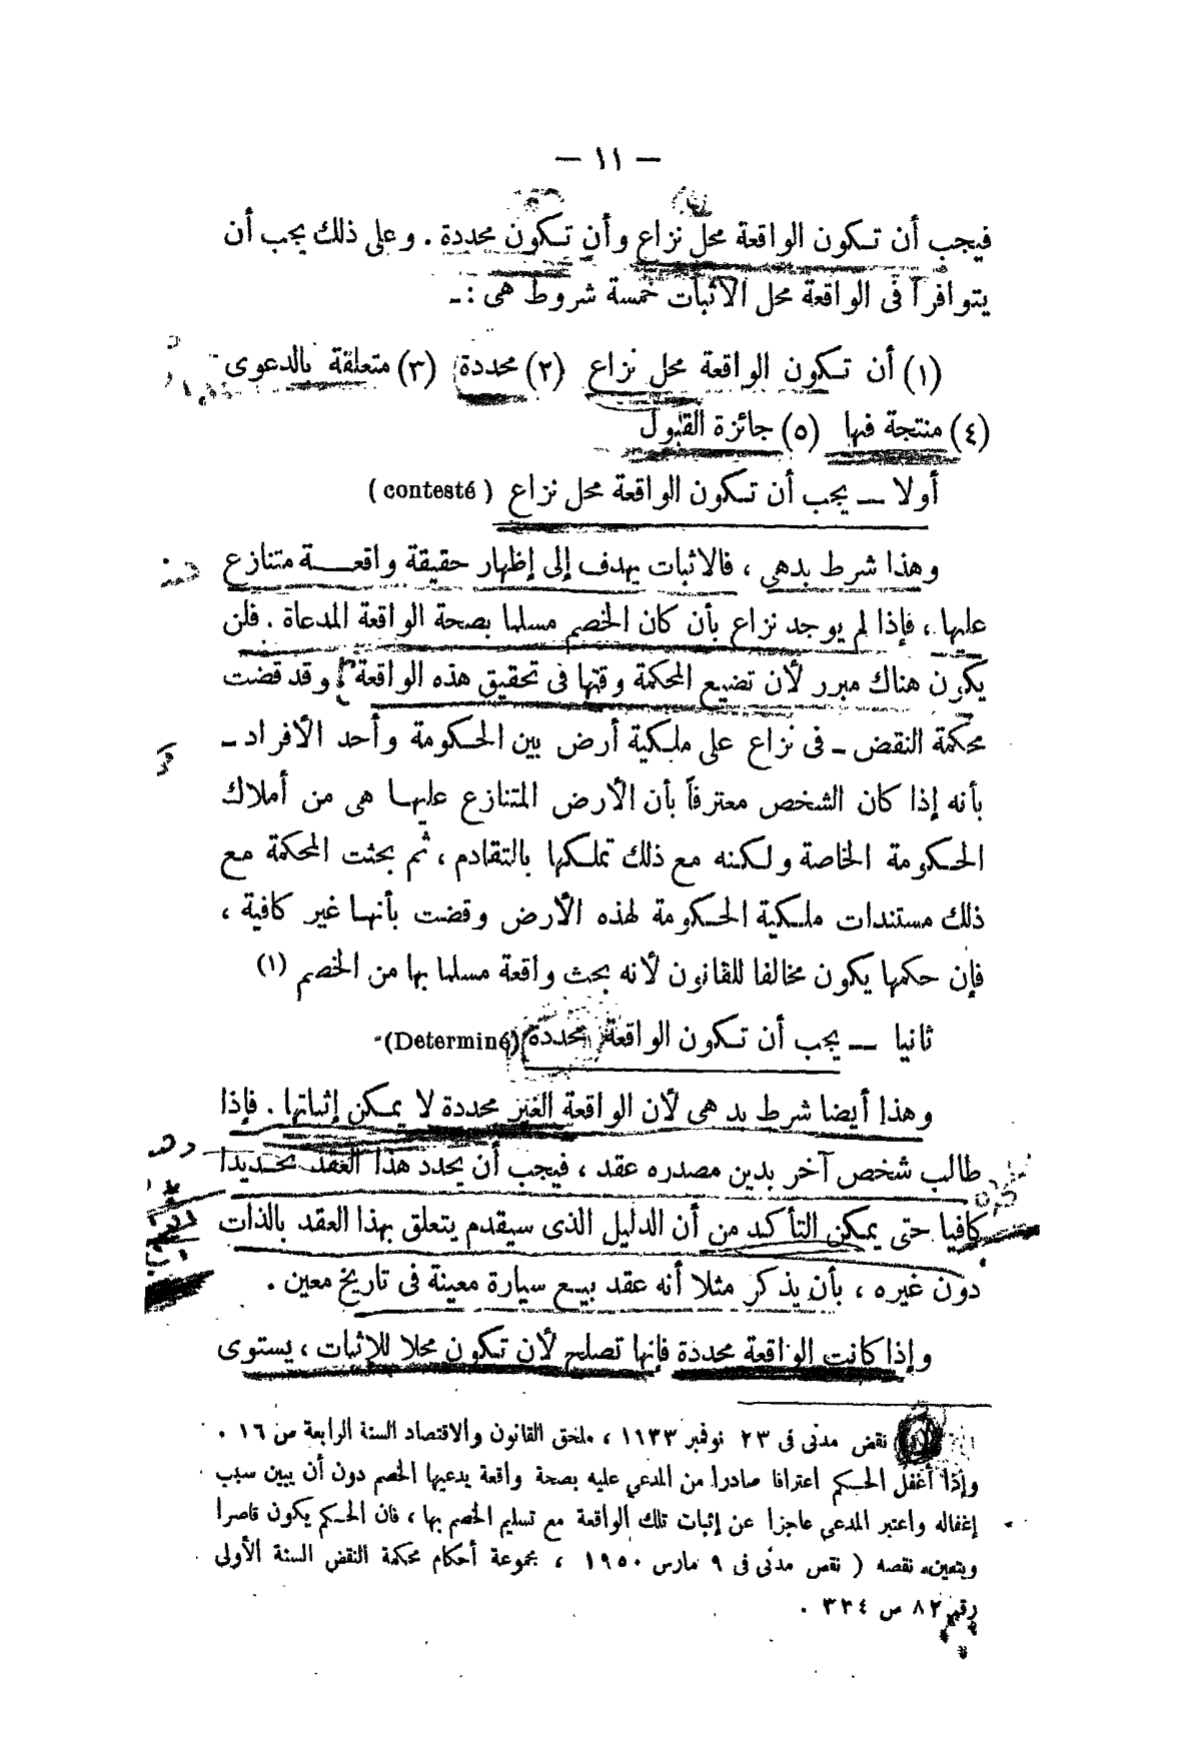 — ١١ —
فيجب أن تكون الواقعة محل نزاع وأن تكون محددة . وعلى ذلك يجب أن
يتوافرا فى الواقعة محل الاثبات خمسة شروط هى :ـ
(١) أن تكون الواقعة محل نزاع (٢) محددة (٣) متعلقة بالدعوى
(٤) منتجة فيها (٥) جائزة القبول
أولا — يجب أن تكون الواقعة محل نزاع ( contesté )
وهذا شرط بدهى ، فالاثبات يهدف إلى إظهار حقيقة واقعة متنازع
عليها ، فإذا لم يوجد نزاع بأن كان الخصم مسلما بصحة الواقعة المدعاة . فلن
يكون هناك مبرر لأن تضيع المحكمة وقتها فى تحقيق هذه الواقعة . وقد قضت
محكمة النقض ـ فى نزاع على ملكية أرض بين الحكومة وأحد الأفراد ـ
بأنه إذا كان الشخص معترفاً بأن الأرض المتنازع عليها هى من أملاك
الحكومة الخاصة ولكنه مع ذلك تملكها بالتقادم ، ثم بحثت المحكمة مع
ذلك مستندات ملكية الحكومة لهذه الأرض وقضت بأنها غير كافية ،
فإن حكمها يكون مخالفا للقانون لأنه بحث واقعة مسلما بها من الخصم (١)
ثانيا — يجب أن تكون الواقعة محددة (Determiné)
وهذا أيضا شرط بدهى لأن الواقعة الغير محددة لا يمكن إثباتها . فإذا
طالب شخص آخر بدين مصدره عقد ، فيجب أن يحدد هذا العقد تحديدا
كافيا حتى يمكن التأكد من أن الدليل الذى سيقدم يتعلق بهذا العقد بالذات
دون غيره ، بأن يذكر مثلا أنه عقد بيع سيارة معينة فى تاريخ معين .
وإذا كانت الواقعة محددة فإنها تصلح لأن تكون محلا للاثبات ، يستوى
نقض مدنى فى ٢٣ نوفمبر ١٩٣٣ ، ملحق القانون والاقتصاد السنة الرابعة ص ١٦ .
وإذا أغفل الحكم اعترافا صادرا من المدعى عليه بصحة واقعة يدعيها الخصم دون أن يبين سبب
إغفاله واعتبر المدعى عاجزا عن إثبات تلك الواقعة مع تسليم الخصم بها ، فان الحكم يكون قاصرا
ويتعين نقضه ( نقض مدنى فى ٩ مارس ١٩٥٠ ، مجموعة أحكام محكمة النقض السنة الأولى
رقم ٨٢ ص ٣٣٤ .